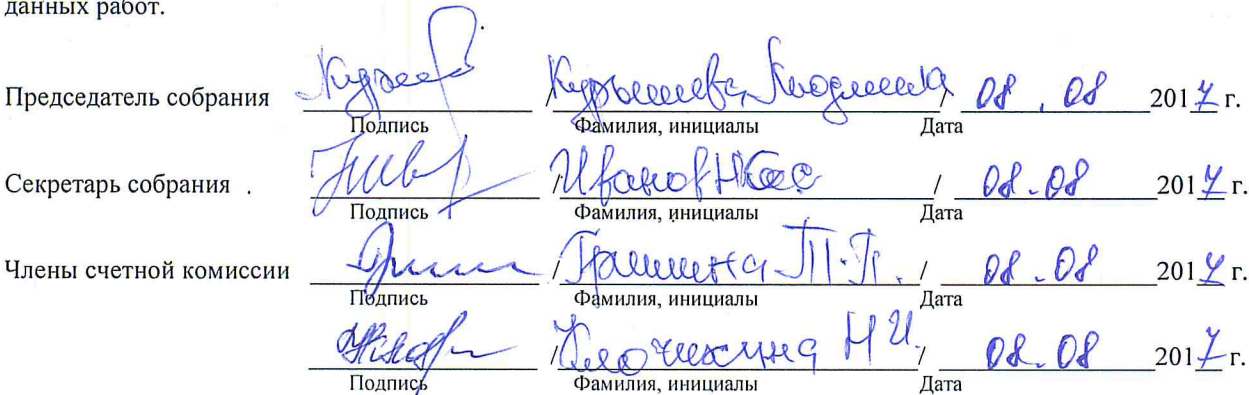 данных работ.
Председатель собрания / Людмила / 08.08 2017 г.
Подпись Фамилия, инициалы Дата
Секретарь собрания / Иванов / 08.08 2017 г.
Подпись Фамилия, инициалы Дата
Члены счетной комиссии / Гришина Т.П. / 08.08 2017 г.
Подпись Фамилия, инициалы Дата
/ Клочихина Н И. / 08.08 2017 г.
Подпись Фамилия, инициалы Дата